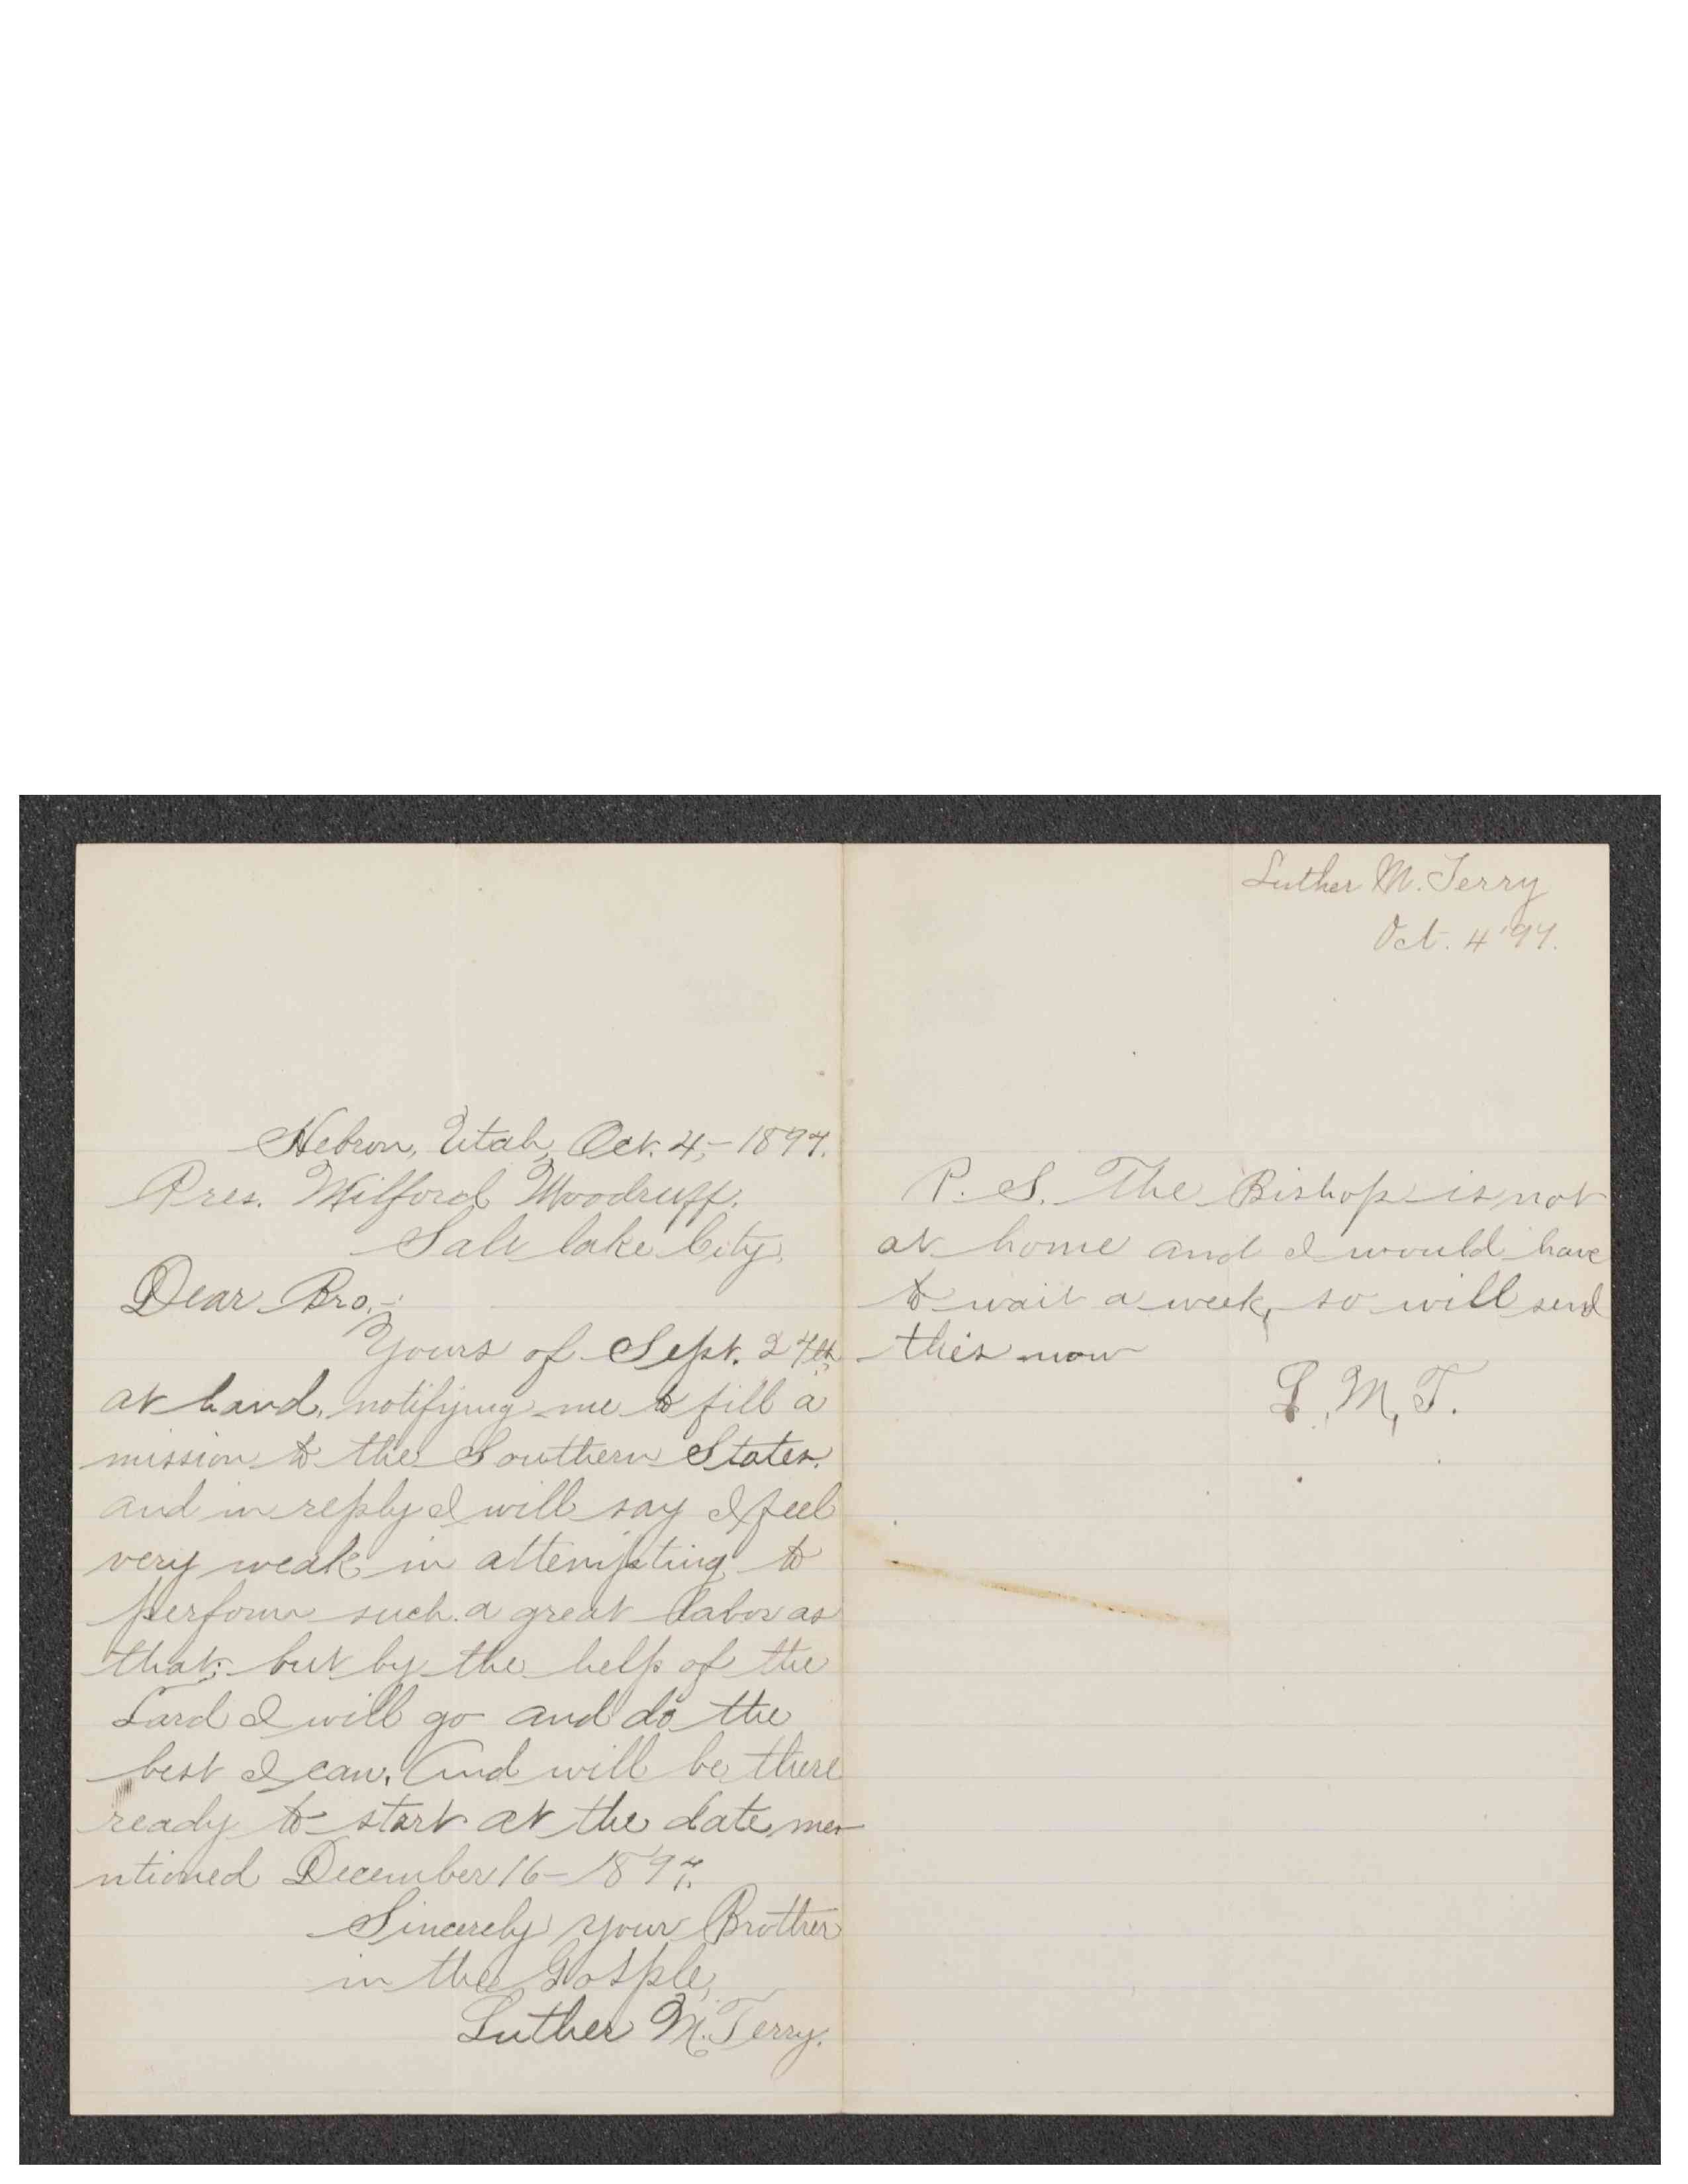 Hebron, Utah, Oct. 4,- 1897.
Pres. Wilford Woodruff.
Salt lake City.
Dear Bro.,-
Yours of Sept. 27th,
at hand, notifying me to fill a
mission to the Southern States.
and in reply I will say I feel
very weak in attempting to
perform such a great labor as
that; but by the help of the
Lord I will go and do the
best I can. And will be there
ready to start at the date, me-
ntioned December 16- 1897.
Sincerely your Brother
in the Gosple,
Luther M. Terry.
Luther M. Terry
Oct. 4 '97.
P. S. The Bishop is not
at home and I would have
to wait a week, so will send
this now
L. M, T.